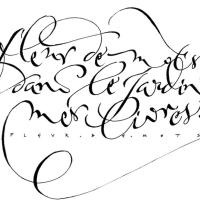 Fleur de mots
dans le Jardin
mes livres
FLEUR.DE.MOTS